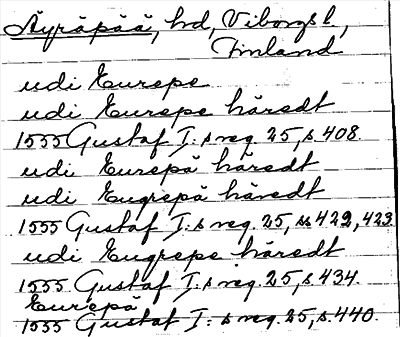 Äyräpää, hd, Viborgs l,
Finland
udi Eurepe
udi Eurepe häredt
1555 Gustaf I:s reg. 25, s. 408.
udi Eurepä häredt
udi Eugrepä häredt
1555 Gustaf I:s reg. 25, ss 422, 423.
udi Eugrepe häredt
1555 Gustaf I:s reg. 25, s. 434.
Eurepä
1555 Gustaf I:s reg. 25, s. 440.